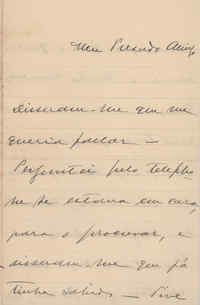 Meu Presado Amigo,
Disseram-me que me
queria fallar —
Perguntei pelo telepho-
ne se estava em casa,
para o procurar, e
disseram-me que já
tinha sahido — Tive